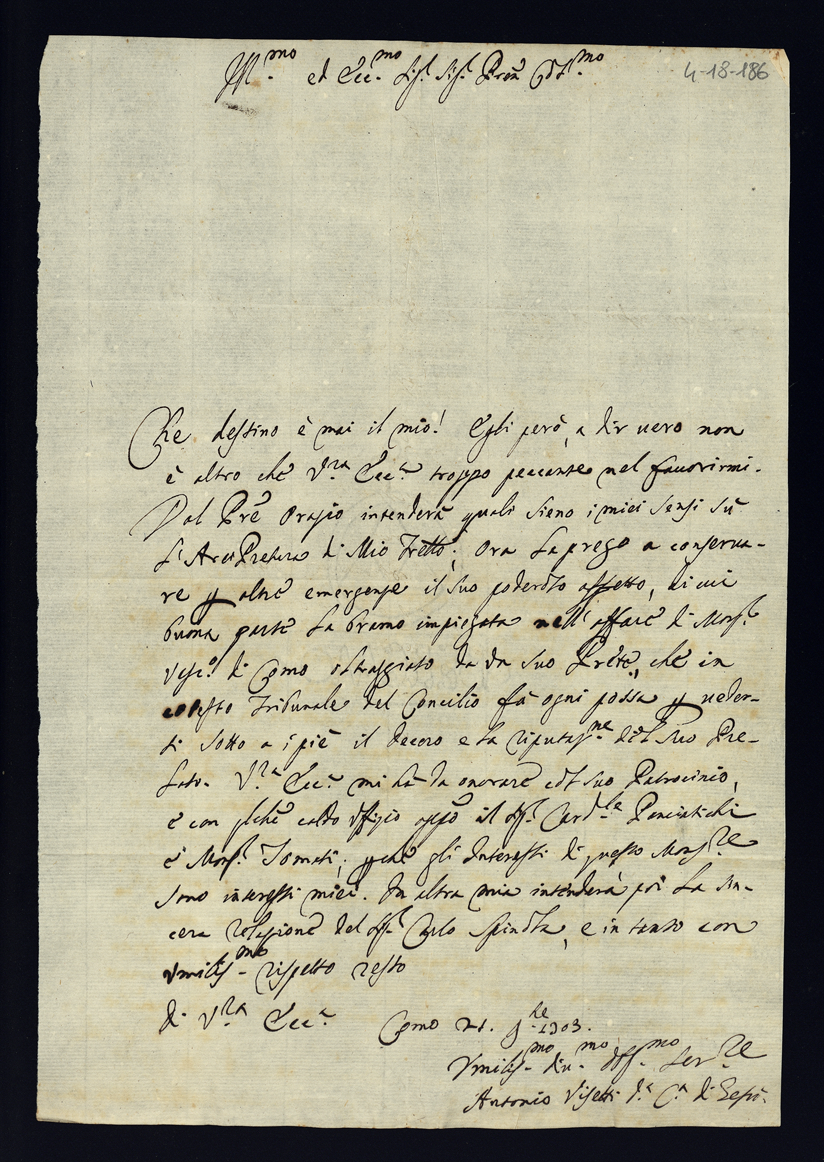 Ill.mo ed Ecc.mo Sig.r Sig.r Pron Col.mo
4-18-186
Che destino è mai il mio! Egli però, a dir uero non
è altro che V.ra Ecc.a troppo peccante nel fauorirmi.
Dal Pre Orazio intenderà quali sieno i miei sensi sù
l'ArciPretura di Mio ; Ora la prego a conserua-
re altre emergenze il suo affetto, di cui
buona parte la bramo impiegata nell'affare di Mons.r
Vesc.o di Como oltraggiato da un suo Prete, che in
cotesto Tribunale del Concilio fà ogni possa ueder-
si sotto a i piè il decoro e la riputaz.ne del suo Pre-
lato. V.ra Ecc.a mi hà da onorare col suo Patrocinio,
e con qlche caldo uffizio appo il Sig.r Card.le Panciatichi
e Mons.r ; gli Interessi di questo Mons.re
sono interessi miei. In altra mia intenderà poi la sin-
cera relazione del Sig.r Carlo Spinola, e in tanto con
Umiliss.mo rispetto resto
di V.ra Ecc.a Como 21.
Umiliss.mo diu.mo obl.mo Ser.re
Antonio d.a C.a di Gesù.